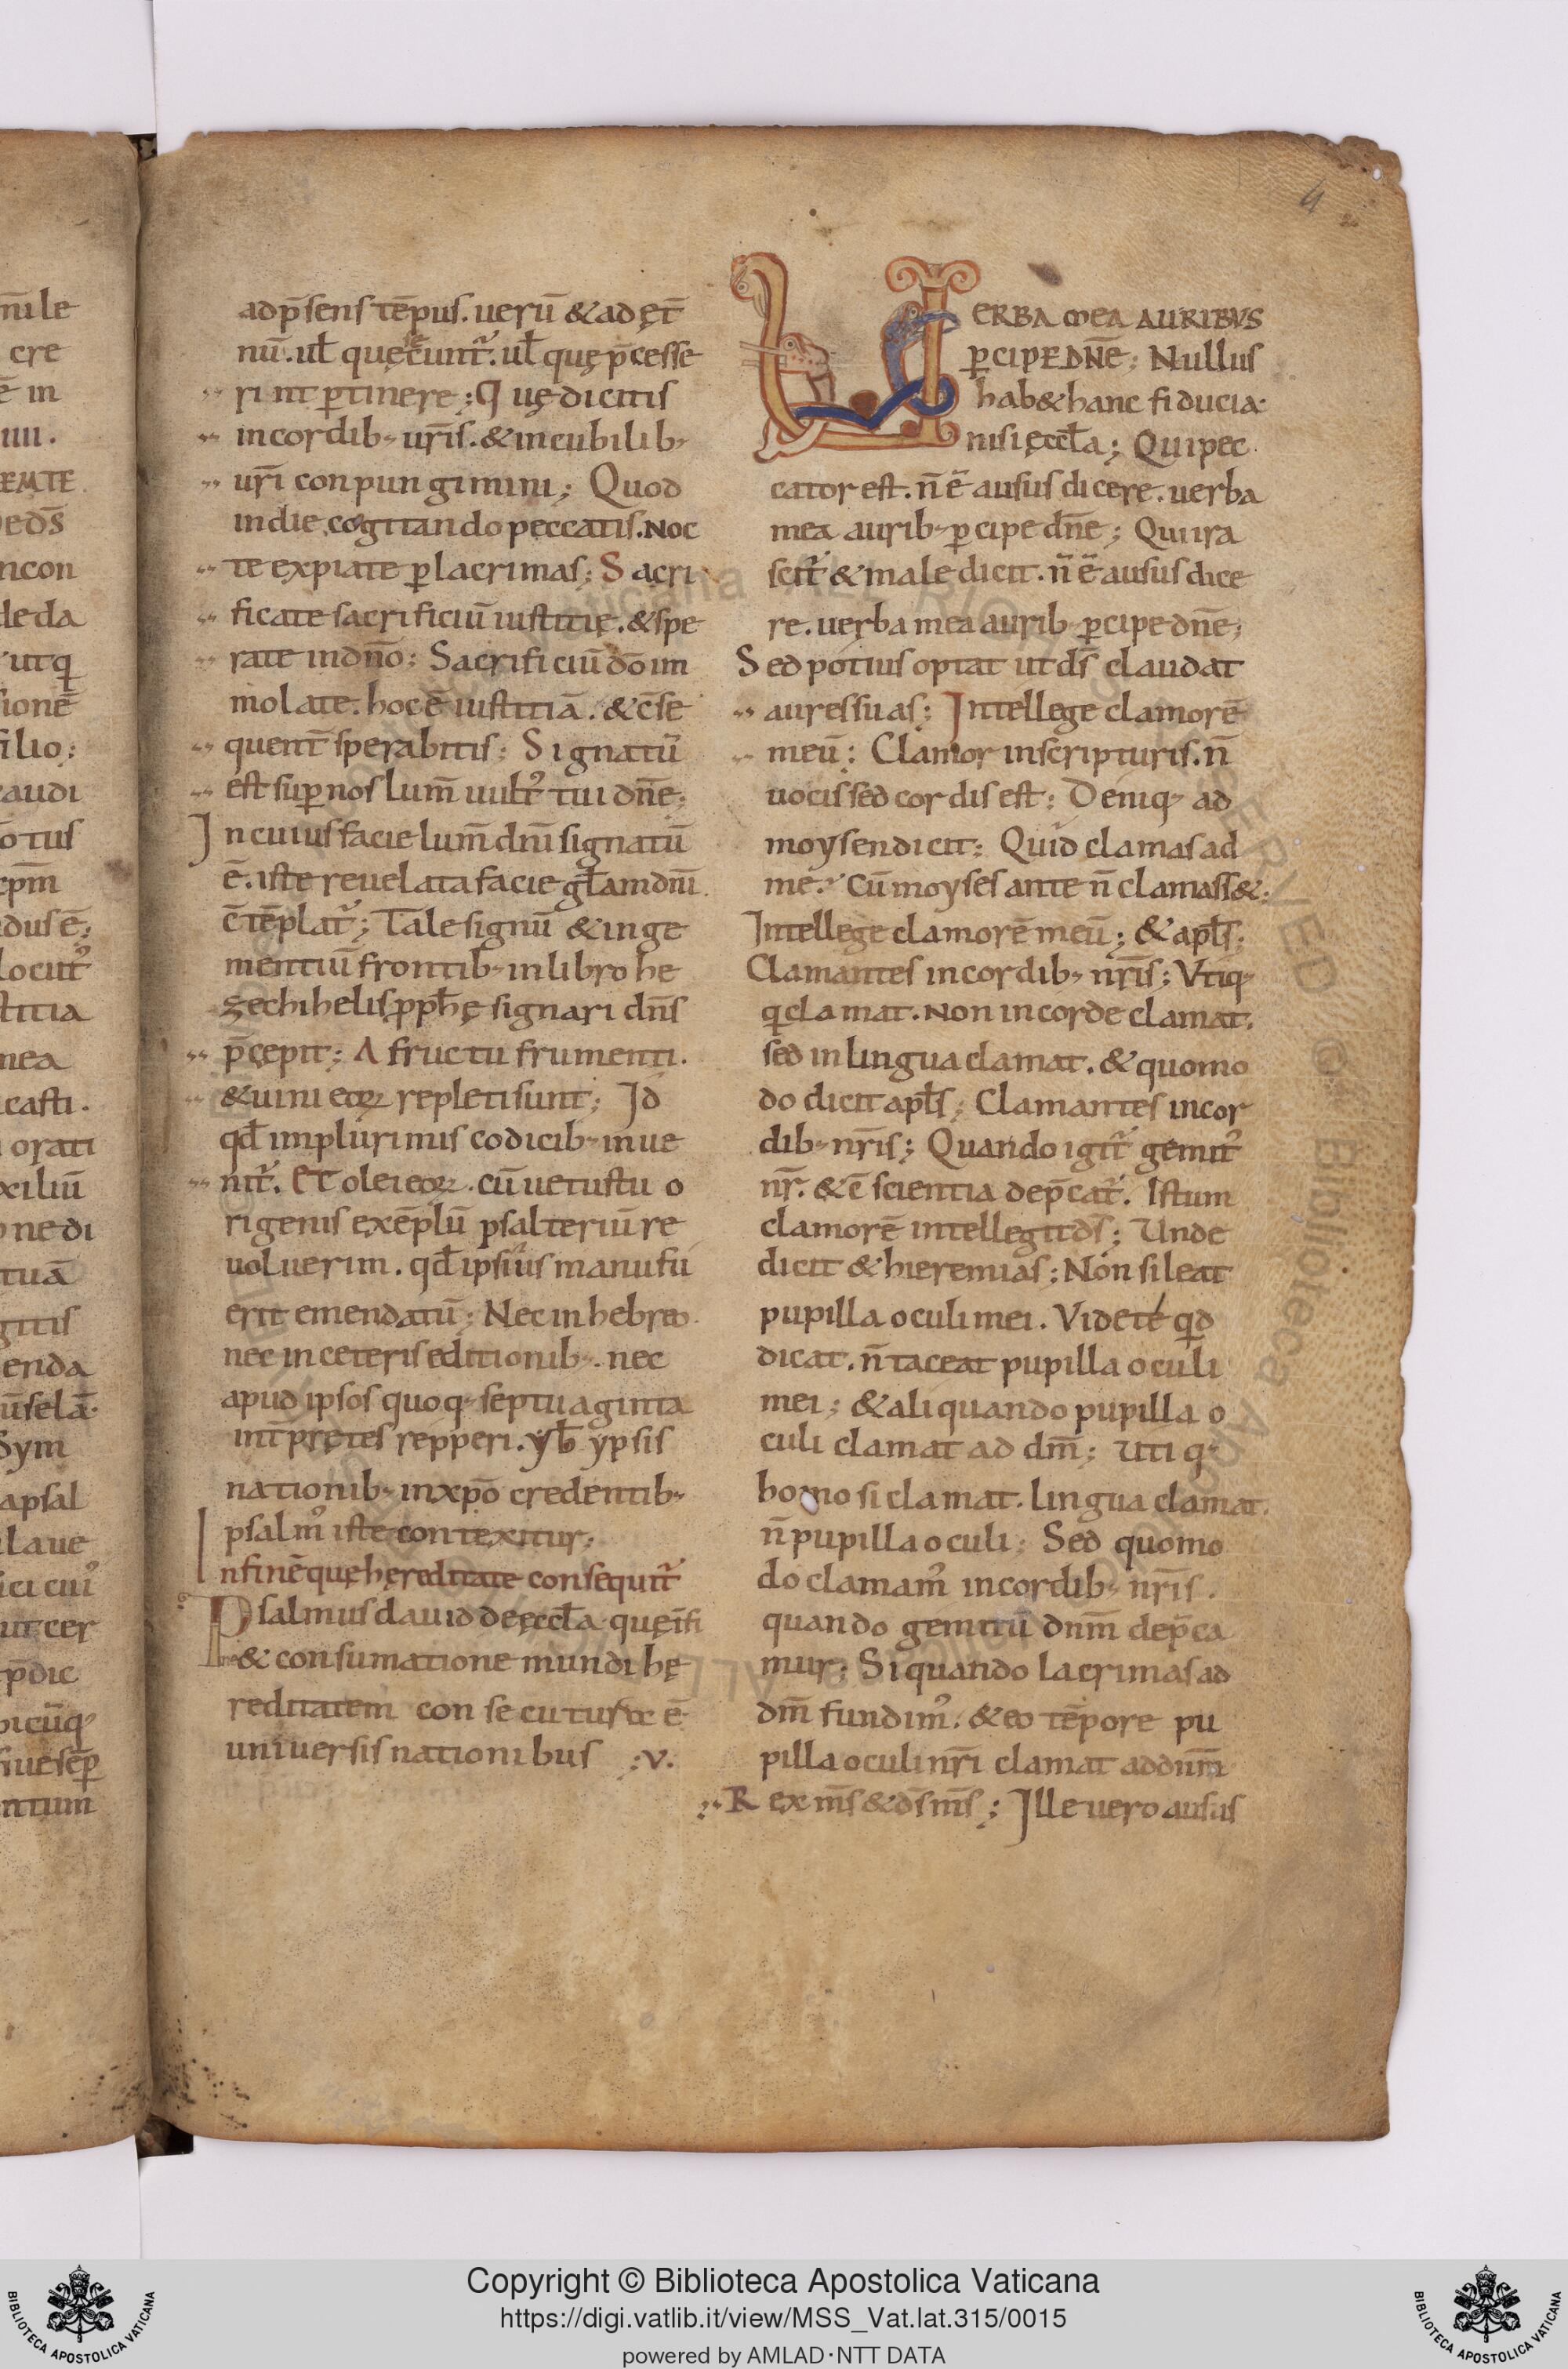 ñile
cre
ē in
iiii.
EMTE
edš
ncon
de da
utq
sionē
filio;
audi
ō tus
cpm̄
dus ē;
locut᷒
stitia
mea
casti.
orati
xiliū
ne di
tuā
gitis
enda
ūselā
Sym
apsal
la ue
ici cui᷒
ut cer
p̄dic
bicūq
siue sēp
ntum
4
ad p̄sens tēpus. uerū & ad ęt̄
nū. ul̄ quę secunt᷒. ul̄ quę p̄cesse
rint ꝑtinere; Quę dicitis
in cordib; ur̄is. & in cubilib;
ur̄i conpungimini; Quod
in die cogitando peccatis. Noc
te expiate ꝑ lacrimas; Sacri
ficate sacrificiū iustitię. & spe
rate in dn̄o; Sacrificiū dō im
molate. hoc ē iustitiā. & c̄se
quent̄ sperabitis; Signatū
est suꝑ nos lum̄ uult᷒ tui dn̄e;
In cuius facie lum̄ dn̄i signatū
ē. iste reuelata facie gl̄am dn̄i
c̄tēplat᷒; Tale signū & in ge
mentiū frontib; in libro he
zechihelis ꝓph̄ę signari dn̄s
p̄cepit; A fructu frumenti.
& uini eoꝝ repleti sunt; Id
qd̄ in plurimis codicib; inue
nit᷒. ET olei eoꝝ. cū uetustu o
rigenis exēplū psalteriū re
uoluerim. qd̄ ipsius manu fu
erit emendatū; Nec in hebreo.
nec in ceteris editionib;. nec
apud ipsos quoq; septuaginta
int̄pretes repperi. yb̄ ypsis
nationib; in xp̄o credentib;
psalm᷒ iste contexitur;
In finē quę hereditate consequit᷒
Psalmus dauid de ęccl̄a quę ī fi
ne & consumatione mundi hę
reditatem consecutura ē
uniuersis nationibus :v.
VERBA MEA AURIBVS
ꝑCIPE DN̄E; Nullus
hab& hanc fiducia
nisi ęccl̄a; Qui pec
cator est. n̄ ē ausus dicere. uerba
mea aurib; ꝑcipe dn̄e; Qui ira
scit᷒ & male dicit. n̄ ē ausus dice
re. uerba mea aurib; ꝑcipe dn̄e;
Sed potius optat ut ds̄ claudat
aures suas; Intellege clamorē
meū; Clamor in scripturis. n̄
uocis sed cordis est; Deniq; ad
moysen dicit; Quid clamas ad
me? Cū moyses ante n̄ clamass&.
Intellege clamorē meū; & apl̄s;
Clamantes in cordib; nr̄is; Vtiq;
q clamat. Non in corde clamat.
sed in lingua clamat. & quomo
do dicit apl̄s; Clamantes in cor
dib; nr̄is; Quando igit᷒ gemit᷒
nr̄. & c̄scientia dep̄cat᷒. Istum
clamorē intellegit ds̄; Unde
dicit & hieremias; Non sileat
pupilla oculi mei. Videte qd
dicat. n̄ taceat pupilla oculi
mei; & aliquando pupilla o
culi clamat ad dm̄; Utiq;
homo si clamat. lingua clamat.
n̄ pupilla oculi; Sed quomo
do clamam᷒ in cordib; nr̄is.
quando gemitū dnm̄ dep̄ca
mur; Si quando lacrimas ad
dm̄ fundim᷒. & eo tēpore pu
pilla oculi nr̄i clamat ad dnm̄
Rex ms̄ & ds̄ ms̄; Ille uero ausus
Copyright © Biblioteca Apostolica Vaticana
https://digi.vatlib.it/view/MSS_Vat.lat.315/0015
powered by AMLAD·NTT DATA
BIBLIOTECA APOSTOLICA VATICANA
BIBLIOTECA APOSTOLICA VATICANA